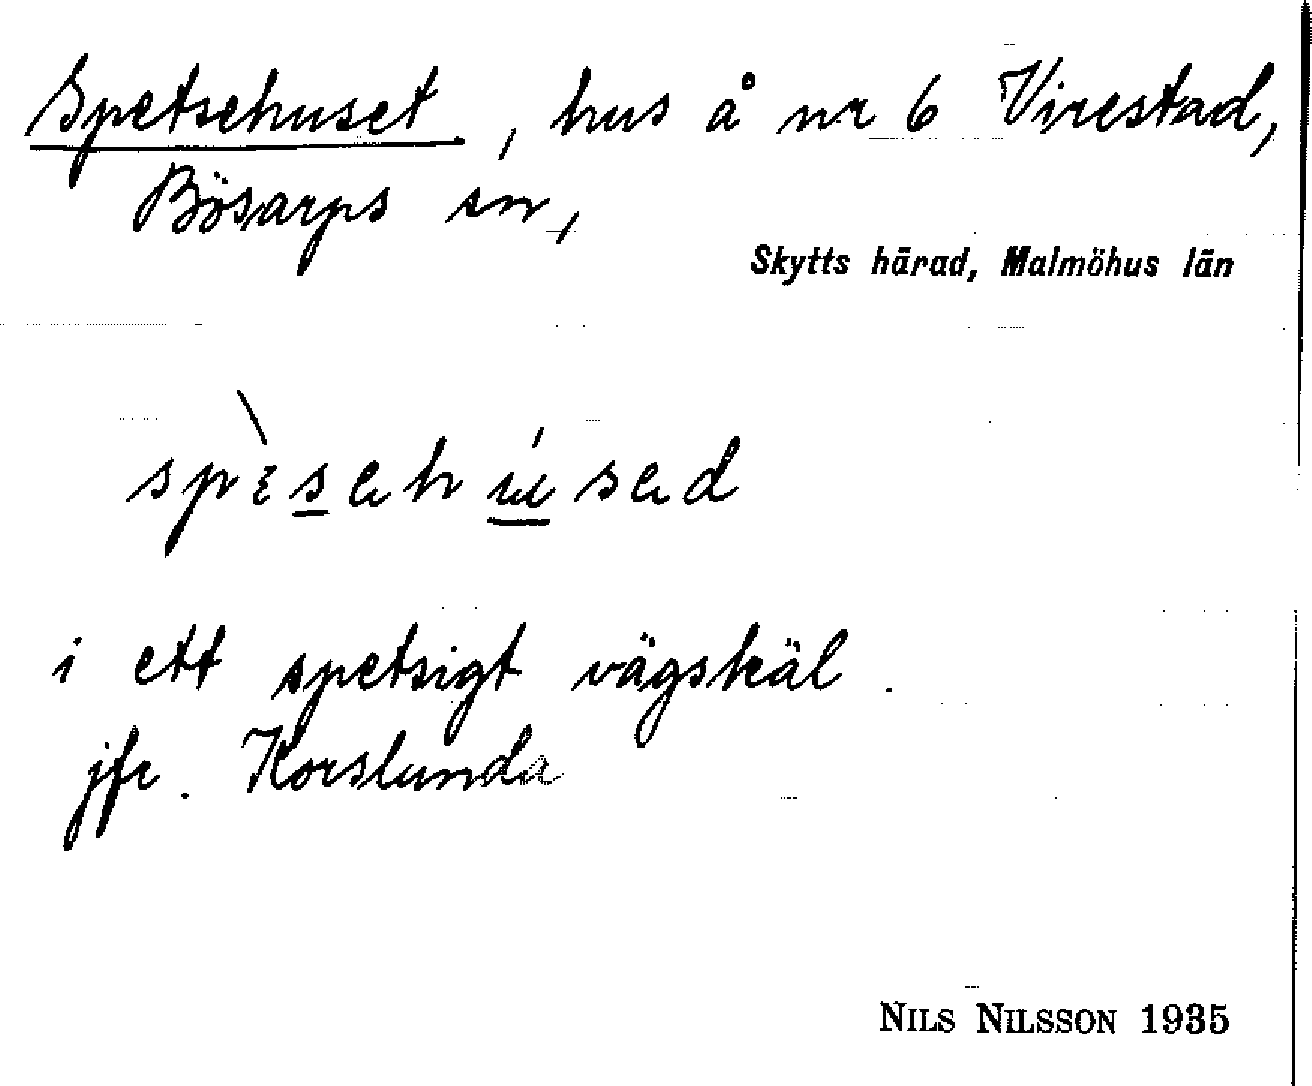 Spetsehuset, hus å nr 6 Virestad,
Bösarps sn,
Skytts härad, Malmöhus län
i ett spetsigt vägskäl.
jfr. Korslunda
NILS NILSSON 1935